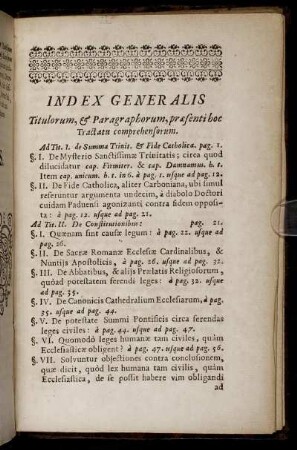 INDEX GENERALIS
Titulorum, & Paragraphorum, præsenti hoc
Tractatu comprehensorum.
Ad Tit. I. de Summa Trinit. & Fide Catholica. pag. 1.
§. I. De Mysterio Sanctissimæ Trinitatis; circa quod
dilucidatur cap. Firmiter. & cap. Damnamus. h. t.
Item cap. unicum. h. t. in 6. à pag. 1. usque ad pag. 12.
§. II. De Fide Catholica, aliter Carboniana, ubi simul
referuntur argumenta undecim, à diabolo Doctori
cuidam Paduensi agonizanti contra fidem opposi-
ta: à pag. 12. usque ad pag. 21.
Ad Tit. II. De Constitutionibus: pag. 21.
§. I. Quænam sint causæ legum: à pag. 22. usque ad
pag. 26.
§. II. De Sacræ Romanæ Ecclesiæ Cardinalibus, &
Nuntijs Apostolicis, à pag. 26. usque ad pag. 32.
§. III. De Abbatibus, & alijs Prælatis Religiosorum,
quòad potestatem ferendi leges: à pag. 32. usque
ad pag. 35.
§. IV. De Canonicis Cathedralium Ecclesiarum, à pag.
35. usque ad pag. 44.
§. V. De potestate Summi Pontificis circa ferendas
leges civiles: à pag. 44. usque ad pag. 47.
§. VI. Quomodò leges humanæ tam civiles, quàm
Ecclesiasticæ obligent? à pag. 47. usque ad pag. 56.
§. VII. Solvuntur objectiones contra conclusionem,
quæ dicit, quòd lex humana tam civilis, quàm
Ecclesiastica, de se possit habere vim obligandi
ad